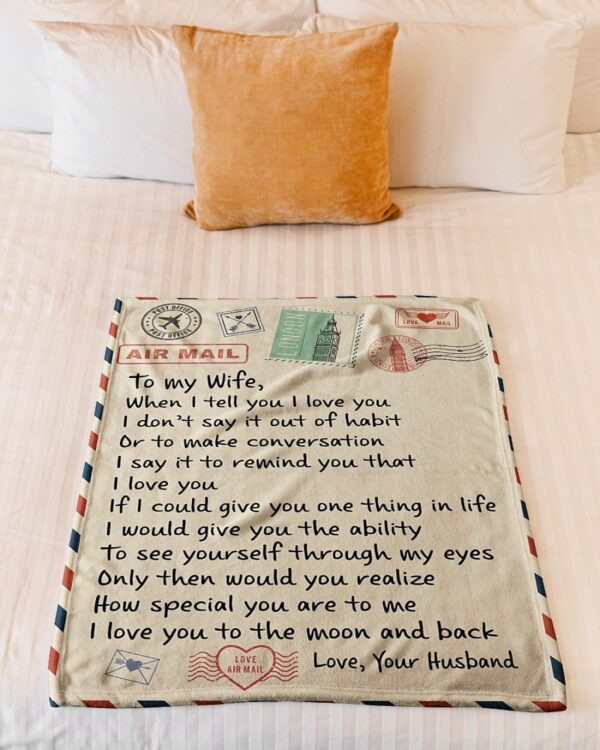 POST OFFICE
POST OFFICE
LONDON
LOVE MAIL
AIR MAIL
To my Wife,
When I tell you I love you
I don't say it out of habit
Or to make conversation
I say it to remind you that
I love you
If I could give you one thing in life
I would give you the ability
To see yourself through my eyes
Only then would you realize
How special you are to me
I love you to the moon and back
Love, Your Husband
LOVE
AIR MAIL